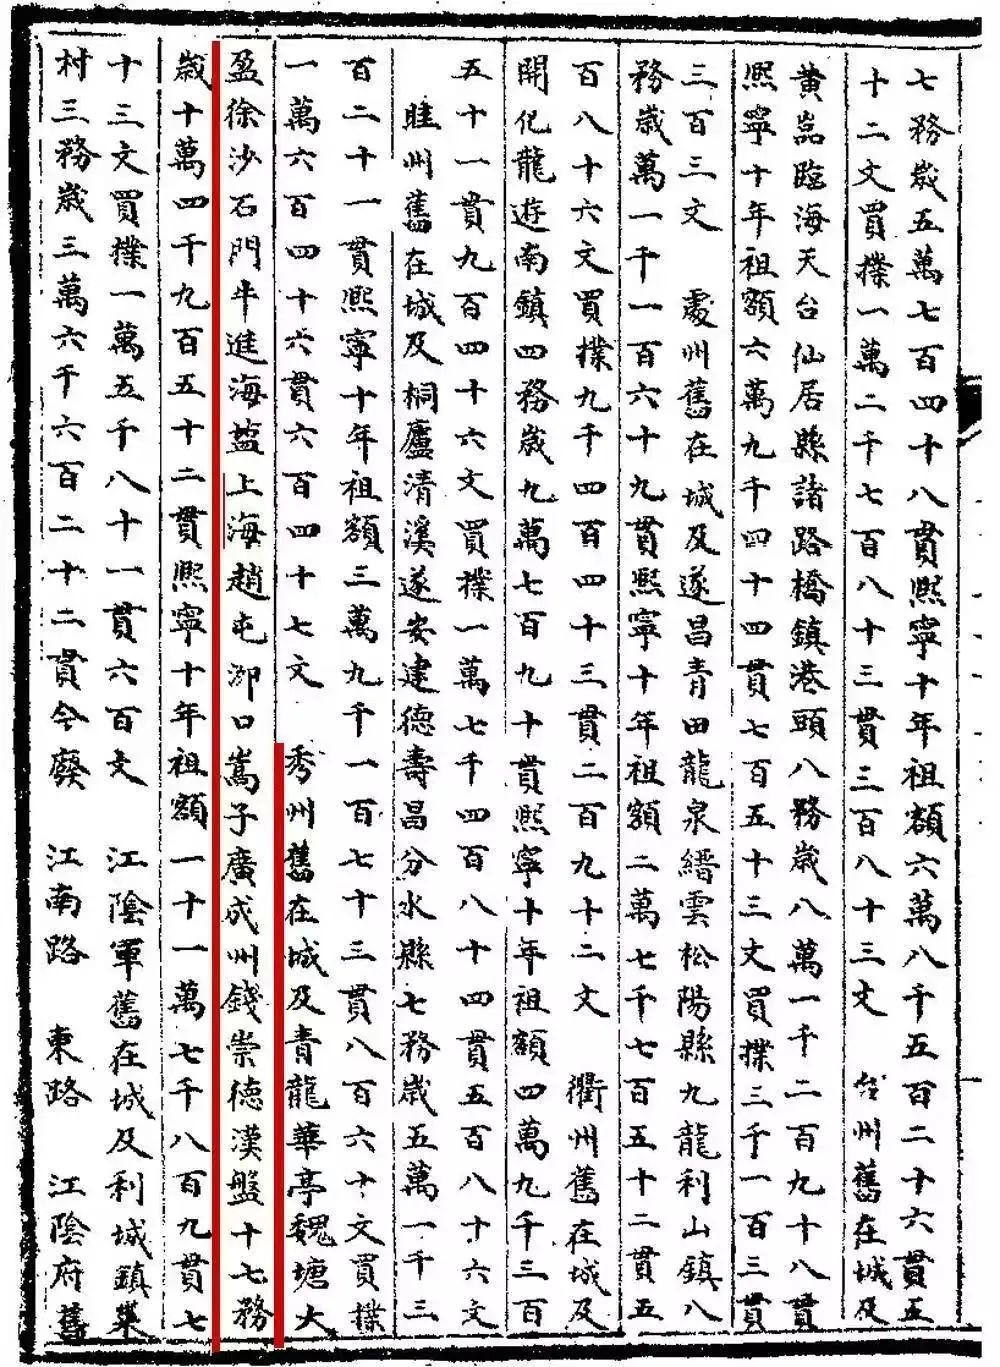 七務歲五萬七百四十八貫熙寧十年祖額六萬八千五百二十六貫五
十二文買撲一萬二千七百八十三貫三百八十三文 台州舊在城及
黃巖臨海天台仙居縣諸路橋鎮港頭八務歲八萬一千二百九十八貫
熙寧十年祖額六萬九千四十四貫七百五十三文買撲三千一百三貫
三百三文 處州舊在城及遂昌青田龍泉縉雲松陽縣九龍利山鎮八
務歲萬一千一百六十九貫熙寧十年祖額二萬七千七百五十二貫五
百八十六文買撲九千四百四十三貫二百九十二文 衢州舊在城及
開化龍遊南鎮四務歲九萬七百九十貫熙寧十年祖額四萬九千三百
五十一貫九百四十六文買撲一萬七千四百八十四貫五百八十六文
睦州舊在城及桐廬清溪遂安建德壽昌分水縣七務歲五萬一千三
百二十一貫熙寧十年祖額三萬九千一百七十三貫八百六十文買撲
一萬六百四十六貫六百四十七文 秀州舊在城及青龍華亭魏塘大
盈徐沙石門牛進海鹽上海趙屯泖口嵩子廣成州錢崇德漢盤十七務
歲十萬四千九百五十二貫熙寧十年祖額一十一萬七千八百九貫七
十三文買撲一萬五千八十一貫六百文 江陰軍舊在城及利城鎮葉
村三務歲三萬六千六百二十二貫今廢 江南路 東路 江陰府舊